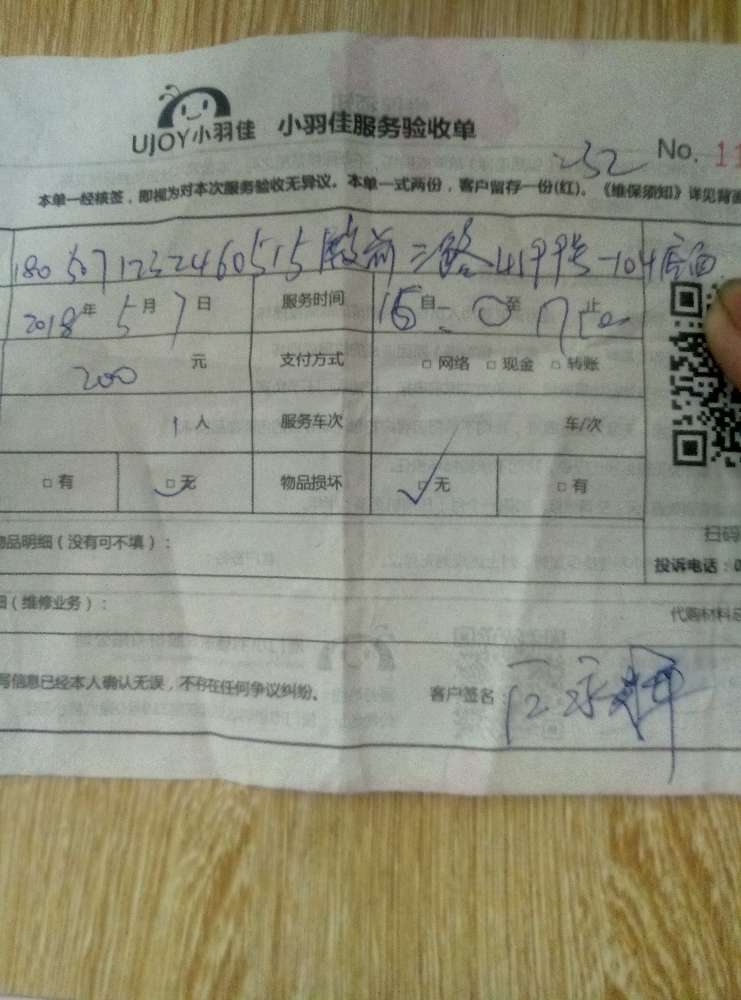 UJOY小羽佳 小羽佳服务验收单
232 No. 11
本单一经核签，即视为对本次服务验收无异议。本单一式两份，客户留存一份(红)。《维保须知》详见背面
1805071232460515殿前二路419号-104店面
2018年5月7日 服务时间 15自:0至17止
200元 支付方式 □网络 □现金 □转账
1人 服务车次 车/次
□有 □无 物品损坏 □无 □有
物品明细（没有可不填）： 扫码
投诉电话：0
（维修业务）： 代购材料总
写信息已经本人确认无误，不存在任何争议纠纷。 客户签名：